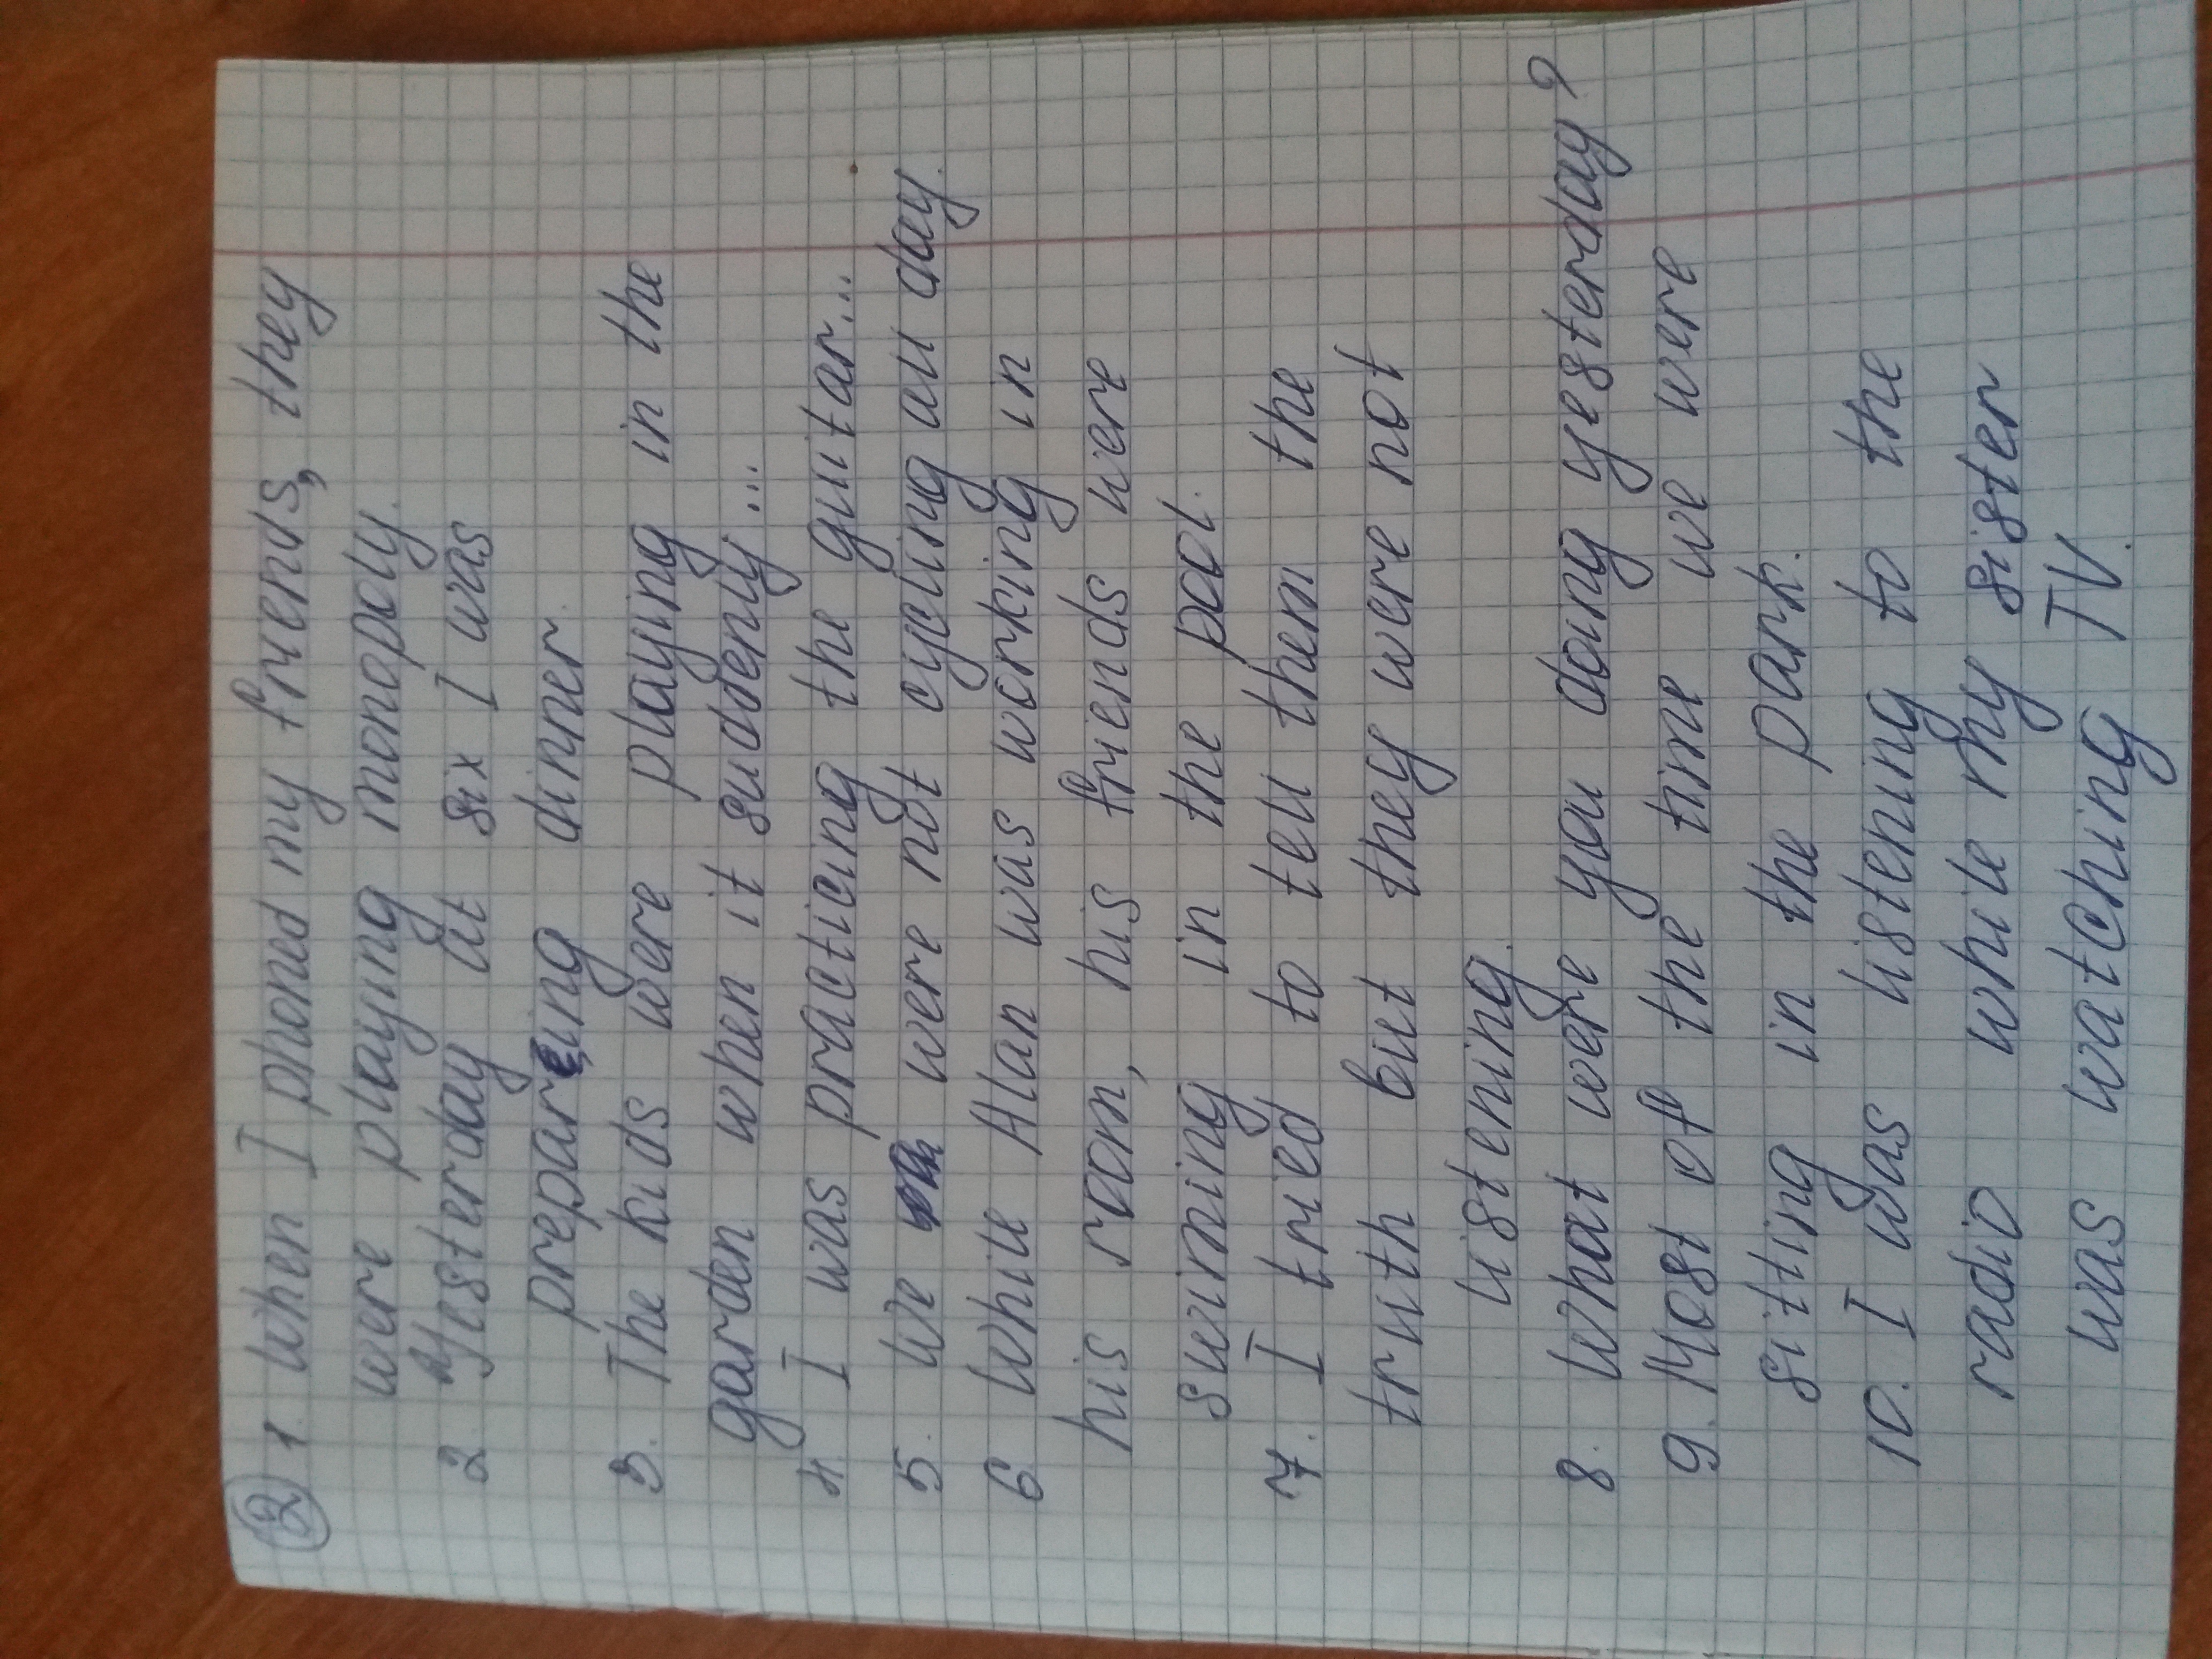 ② 1. When I phoned my friends, they
were playing monopoly.
2. Yesterday at six I was
prepareing dinner.
3. The kids were playing in the
garden when it suddenly...
4. I was practicing the guitar...
5. We were not cycling all day.
6. While Alan was working in
his room, his friends were
swiming in the pool.
7. I tried to tell them the
truth but they were not
listening.
8. What were you doing yesterday?
9. Most of the time we were
sitting in the park.
10. I was listening to the
radio while my sister
was watching TV.